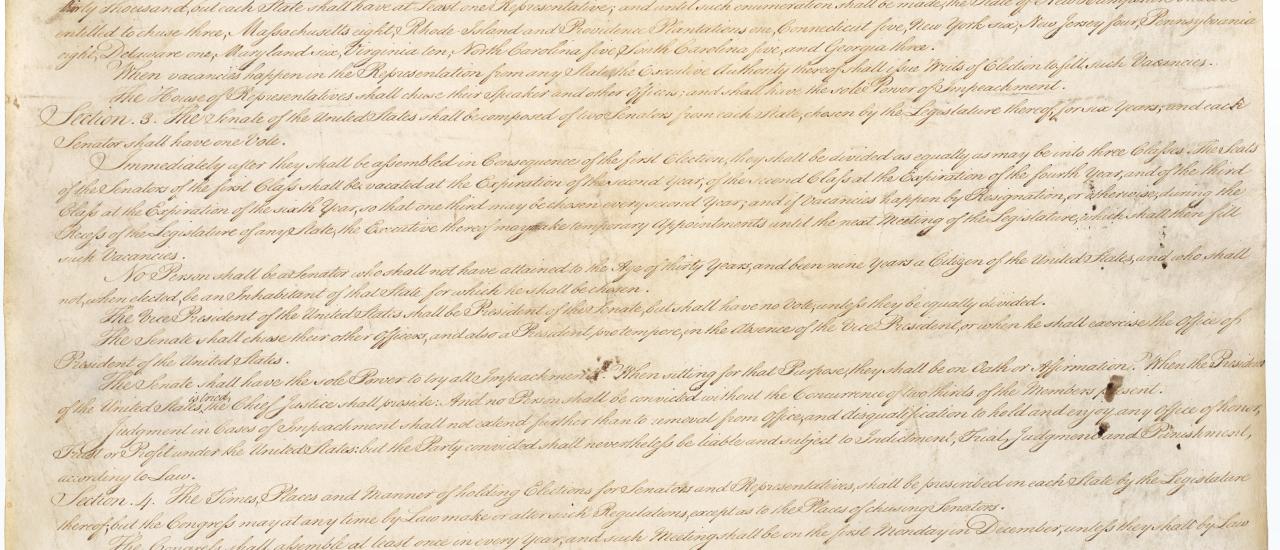 thirty Thousand, but each State shall have at Least one Representative; and until such enumeration shall be made, the State of New Hampshire shall be
entitled to chuse three, Massachusetts eight, Rhode-Island and Providence Plantations one, Connecticut five, New-York six, New Jersey four, Pennsylvania
eight, Delaware one, Maryland six, Virginia ten, North Carolina five, South Carolina five, and Georgia three.
When vacancies happen in the Representation from any State, the Executive Authority thereof shall issue Writs of Election to fill such Vacancies.
The House of Representatives shall chuse their Speaker and other Officers; and shall have the sole Power of Impeachment.
Section. 3. The Senate of the United States shall be composed of two Senators from each State, chosen by the Legislature thereof, for six Years; and each
Senator shall have one Vote.
Immediately after they shall be assembled in Consequence of the first Election, they shall be divided as equally as may be into three Classes. The Seats
of the Senators of the first Class shall be vacated at the Expiration of the second Year, of the second Class at the Expiration of the fourth Year, and of the third
Class at the Expiration of the sixth Year, so that one third may be chosen every second Year; and if Vacancies happen by Resignation, or otherwise, during the
Recess of the Legislature of any State, the Executive thereof may make temporary Appointments until the next Meeting of the Legislature, which shall then fill
such Vacancies.
No Person shall be a Senator who shall not have attained to the Age of thirty Years, and been nine Years a Citizen of the United States, and who shall
not, when elected, be an Inhabitant of that State for which he shall be chosen.
The Vice President of the United States shall be President of the Senate, but shall have no Vote, unless they be equally divided.
The Senate shall chuse their other Officers, and also a President pro tempore, in the Absence of the Vice President, or when he shall exercise the Office of
President of the United States.
The Senate shall have the sole Power to try all Impeachments. When sitting for that Purpose, they shall be on Oath or Affirmation. When the President
of the United States is tried, the Chief Justice shall preside: And no Person shall be convicted without the Concurrence of two thirds of the Members present.
Judgment in Cases of Impeachment shall not extend further than to removal from Office, and disqualification to hold and enjoy any Office of honor,
Trust or Profit under the United States: but the Party convicted shall nevertheless be liable and subject to Indictment, Trial, Judgment and Punishment,
according to Law.
Section. 4. The Times, Places and Manner of holding Elections for Senators and Representatives, shall be prescribed in each State by the Legislature
thereof; but the Congress may at any time by Law make or alter such Regulations, except as to the Places of chusing Senators.
The Congress shall assemble at least once in every Year, and such Meeting shall be on the first Monday in December, unless they shall by Law